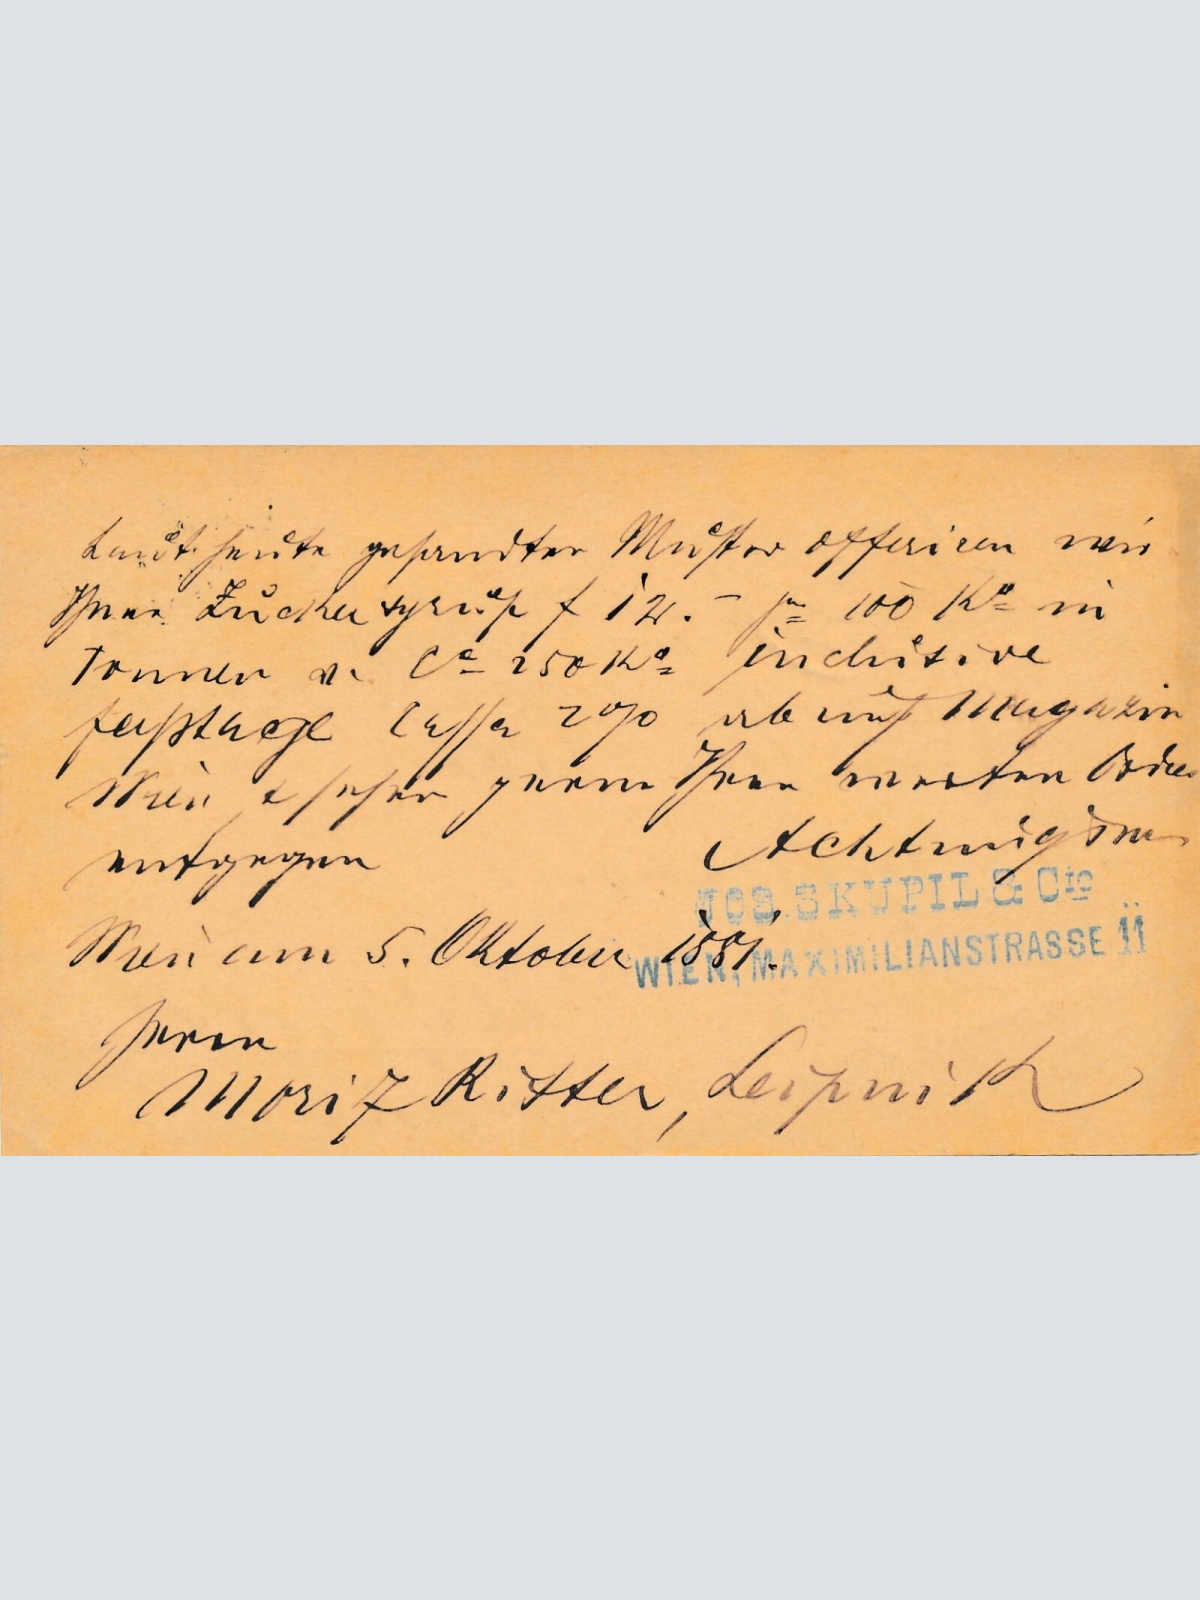 Laut heute gesandter Muster offeriren wir
Ihnen Zuckersyrup f 12.– pr 100 Ko in
Tonnen v. Ca 250 Ko inclusive
Cassa 2% ab uns. Magazin
Wien & sehen gerne Ihren werten Ordres
entgegen Achtungsvoll
JOS. SKUPIL & Cie
WIEN, MAXIMILIANSTRASSE 11
Wien am 5. Oktober 1881.
Herrn
Moriz Ritter, Leipnik